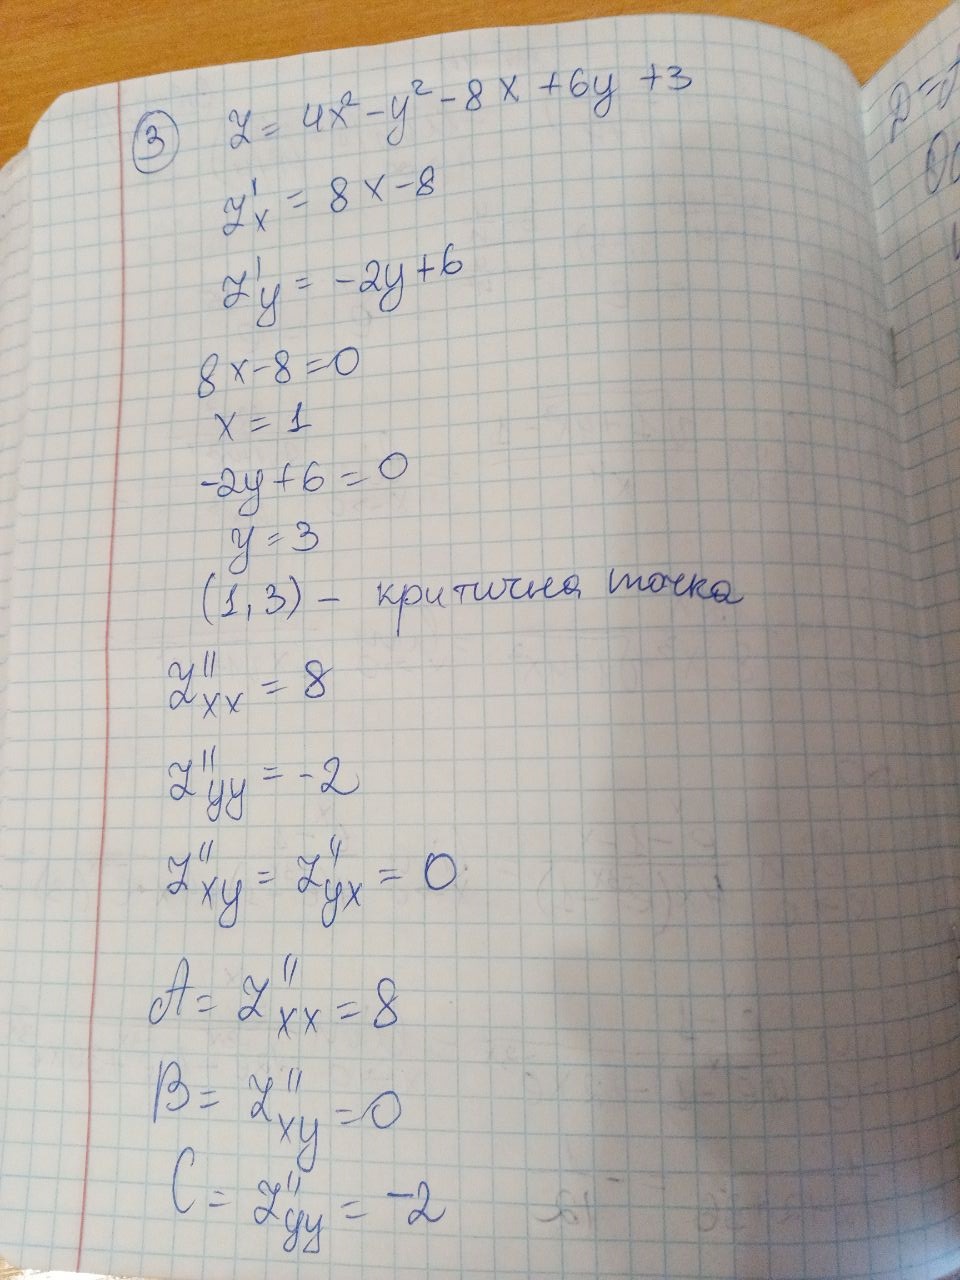 3 z = 4x² - y² - 8x + 6y + 3
z'x = 8x - 8
z'y = -2y + 6
8x - 8 = 0
x = 1
-2y + 6 = 0
y = 3
(1, 3) - критична точка
z''xx = 8
z''yy = -2
z''xy = z''yx = 0
A = z''xx = 8
B = z''xy = 0
C = z''yy = -2